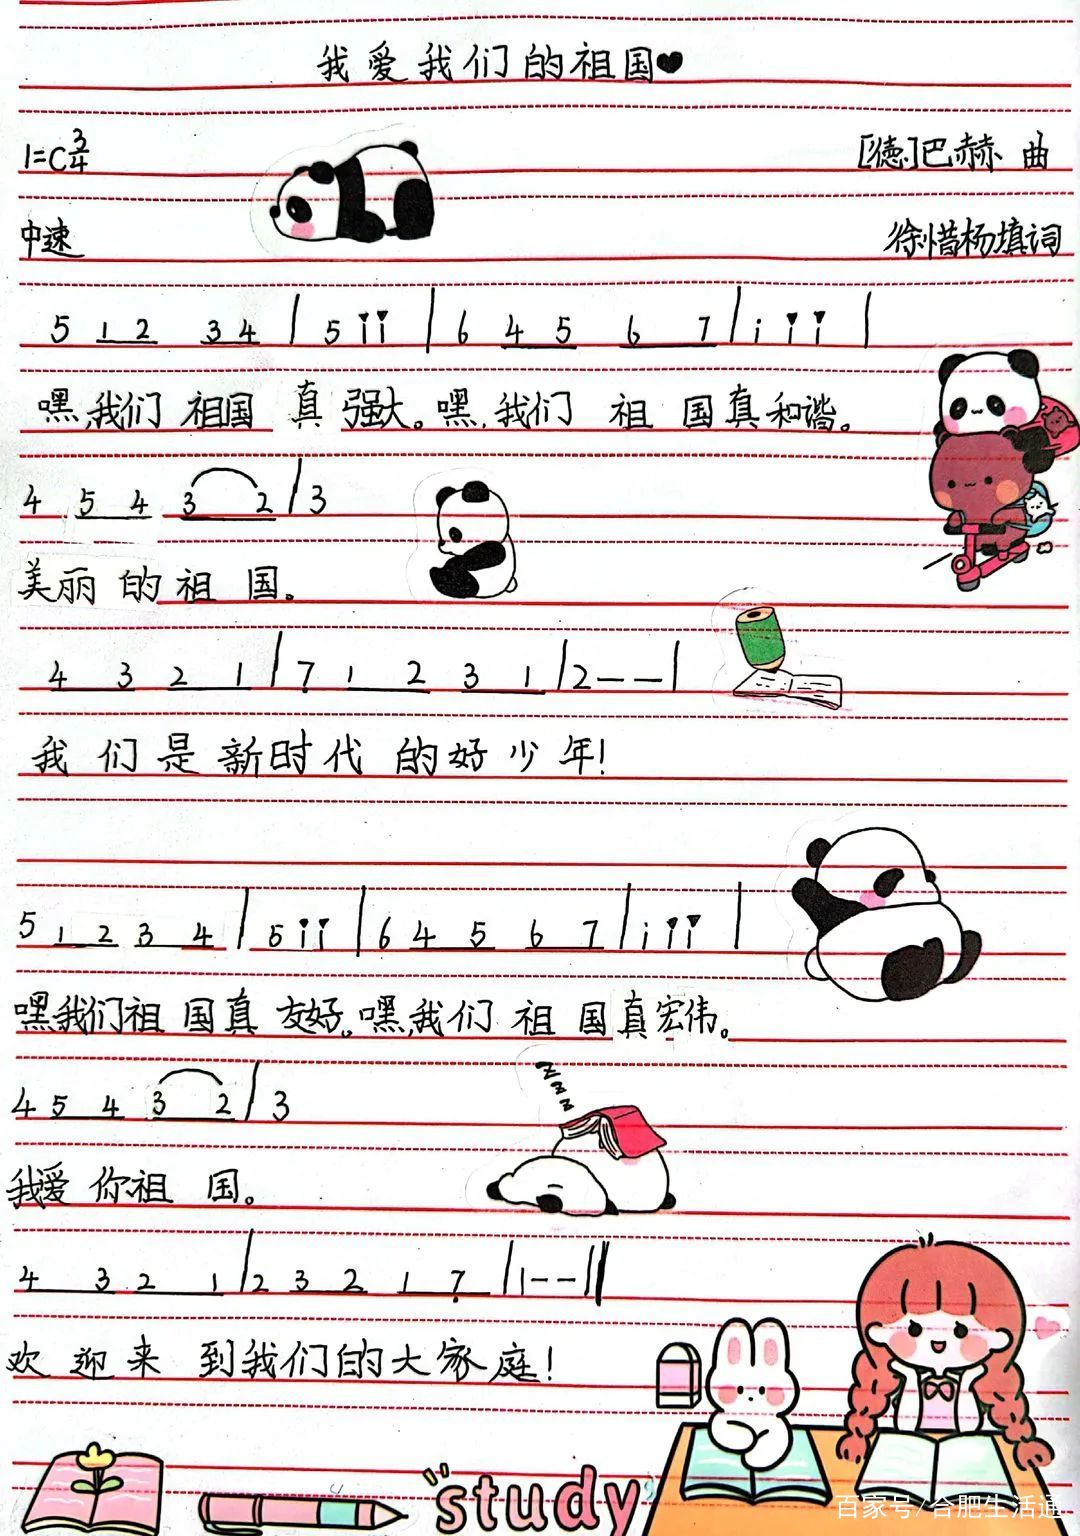 我爱我们的祖国♥
1=C 3/4
[德]巴赫 曲
中速
徐惜杨填词
5 1 2 3 4 | 5 i i | 6 4 5 6 7 | i i i |
嘿,我们 祖国 真 强大。嘿,我们 祖 国真和谐。
4 5 4 3 2 | 3
美丽的祖 国。
4 3 2 1 | 7̣ 1 2 3 1 | 2 — — |
我们是新时代的好少年!
5 1 2 3 4 | 5 i i | 6 4 5 6 7 | i i i |
嘿,我们祖 国真 友好。嘿,我们 祖 国真宏伟。
4 5 4 3 2 | 3
我爱你祖 国。
4 3 2 1 | 2 3 2 1 7̣ | 1 — — ‖
欢迎来到我们的大家庭!
zzz
study
百家号/合肥生活通